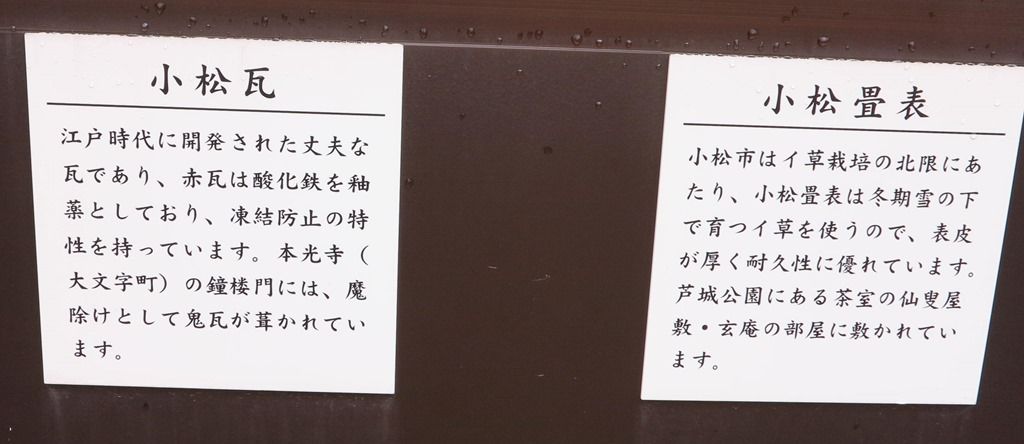 小松瓦
江戸時代に開発された丈夫な
瓦であり、赤瓦は酸化鉄を釉
薬としており、凍結防止の特
性を持っています。本光寺（
大文字町）の鐘楼門には、魔
除けとして鬼瓦が葺かれてい
ます。
小松畳表
小松市はイ草栽培の北限にあ
たり、小松畳表は冬期雪の下
で育つイ草を使うので、表皮
が厚く耐久性に優れています。
芦城公園にある茶室の仙叟屋
敷・玄庵の部屋に敷かれてい
ます。